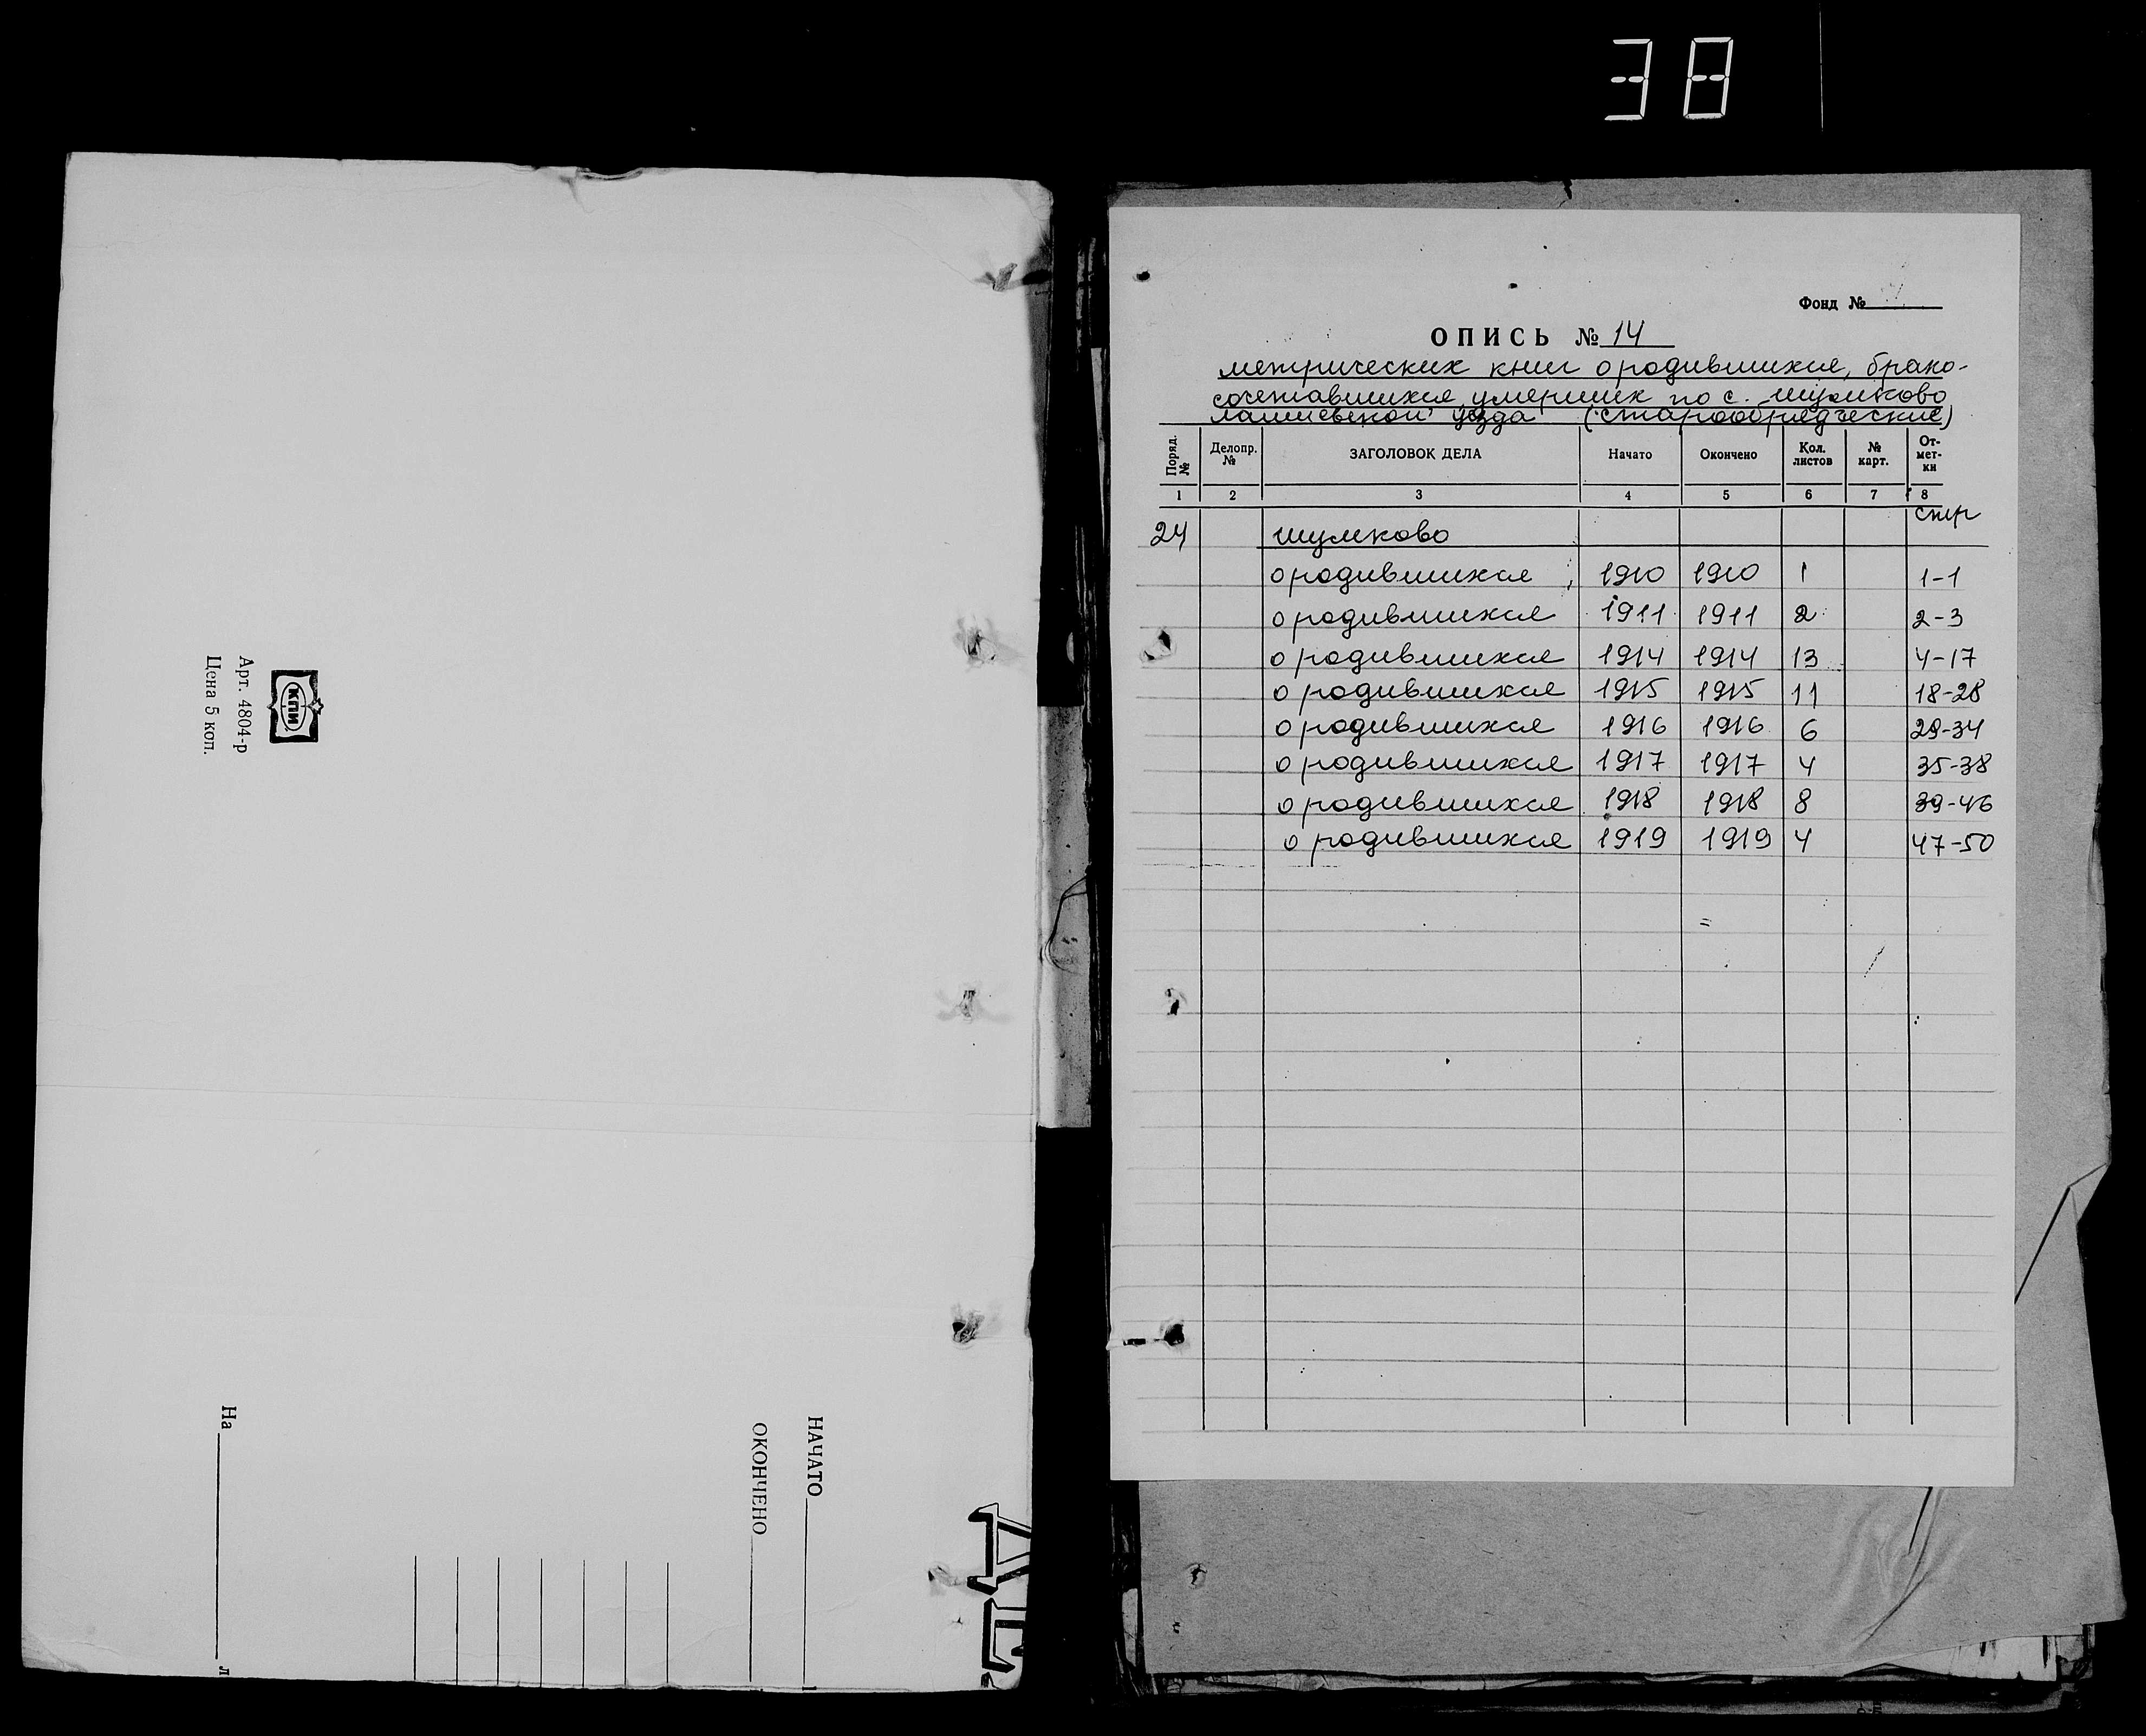 38
КПИ
Арт. 4804-р
Цена 5 коп.
НАЧАТО
ОКОНЧЕНО
На
л
Фонд №
ОПИСЬ № 14
метрических книг о родившихся, брако-
сочетавшихся, умерших по с. Шумково
Лаишевского уезда (старообрядческие)
Поряд. № Делопр. № ЗАГОЛОВОК ДЕЛА Начато Окончено Кол. листов № карт. От-мет-ки
1 2 3 4 5 6 7 8
стр
24 Шумково
о родившихся 1910 1910 1 1-1
о родившихся 1911 1911 2 2-3
о родившихся 1914 1914 13 4-17
о родившихся 1915 1915 11 18-28
о родившихся 1916 1916 6 29-34
о родившихся 1917 1917 4 35-38
о родившихся 1918 1918 8 39-46
о родившихся 1919 1919 4 47-50